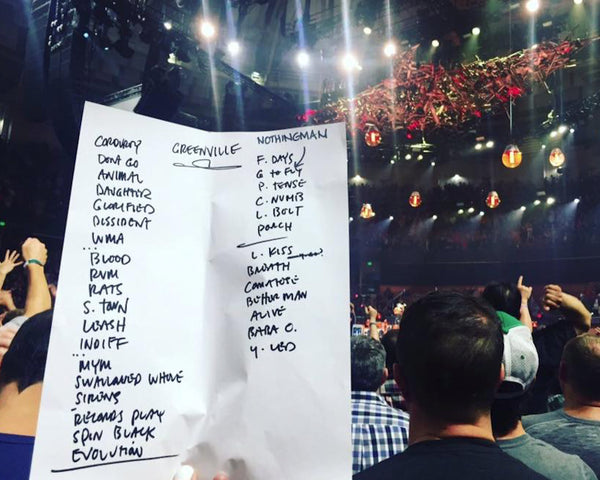 GREENVILLE
CORDUROY
DONT GO
ANIMAL
DAUGHTER
GLORIFIED
DISSIDENT
WMA
...
BLOOD
RVM
RATS
S. TOWN
LEASH
INDIFF
...
MYM
SWALLOWED WHOLE
SIRENS
RECORDS PLAY
SPIN BLACK
EVOLUTION
NOTHINGMAN
F. DAYS
G to FLY
P. TENSE
C. NUMB
L. BOLT
PORCH
L. KISS
BREATH
COMATOSE
BETTER MAN
ALIVE
BABA O.
Y. LED